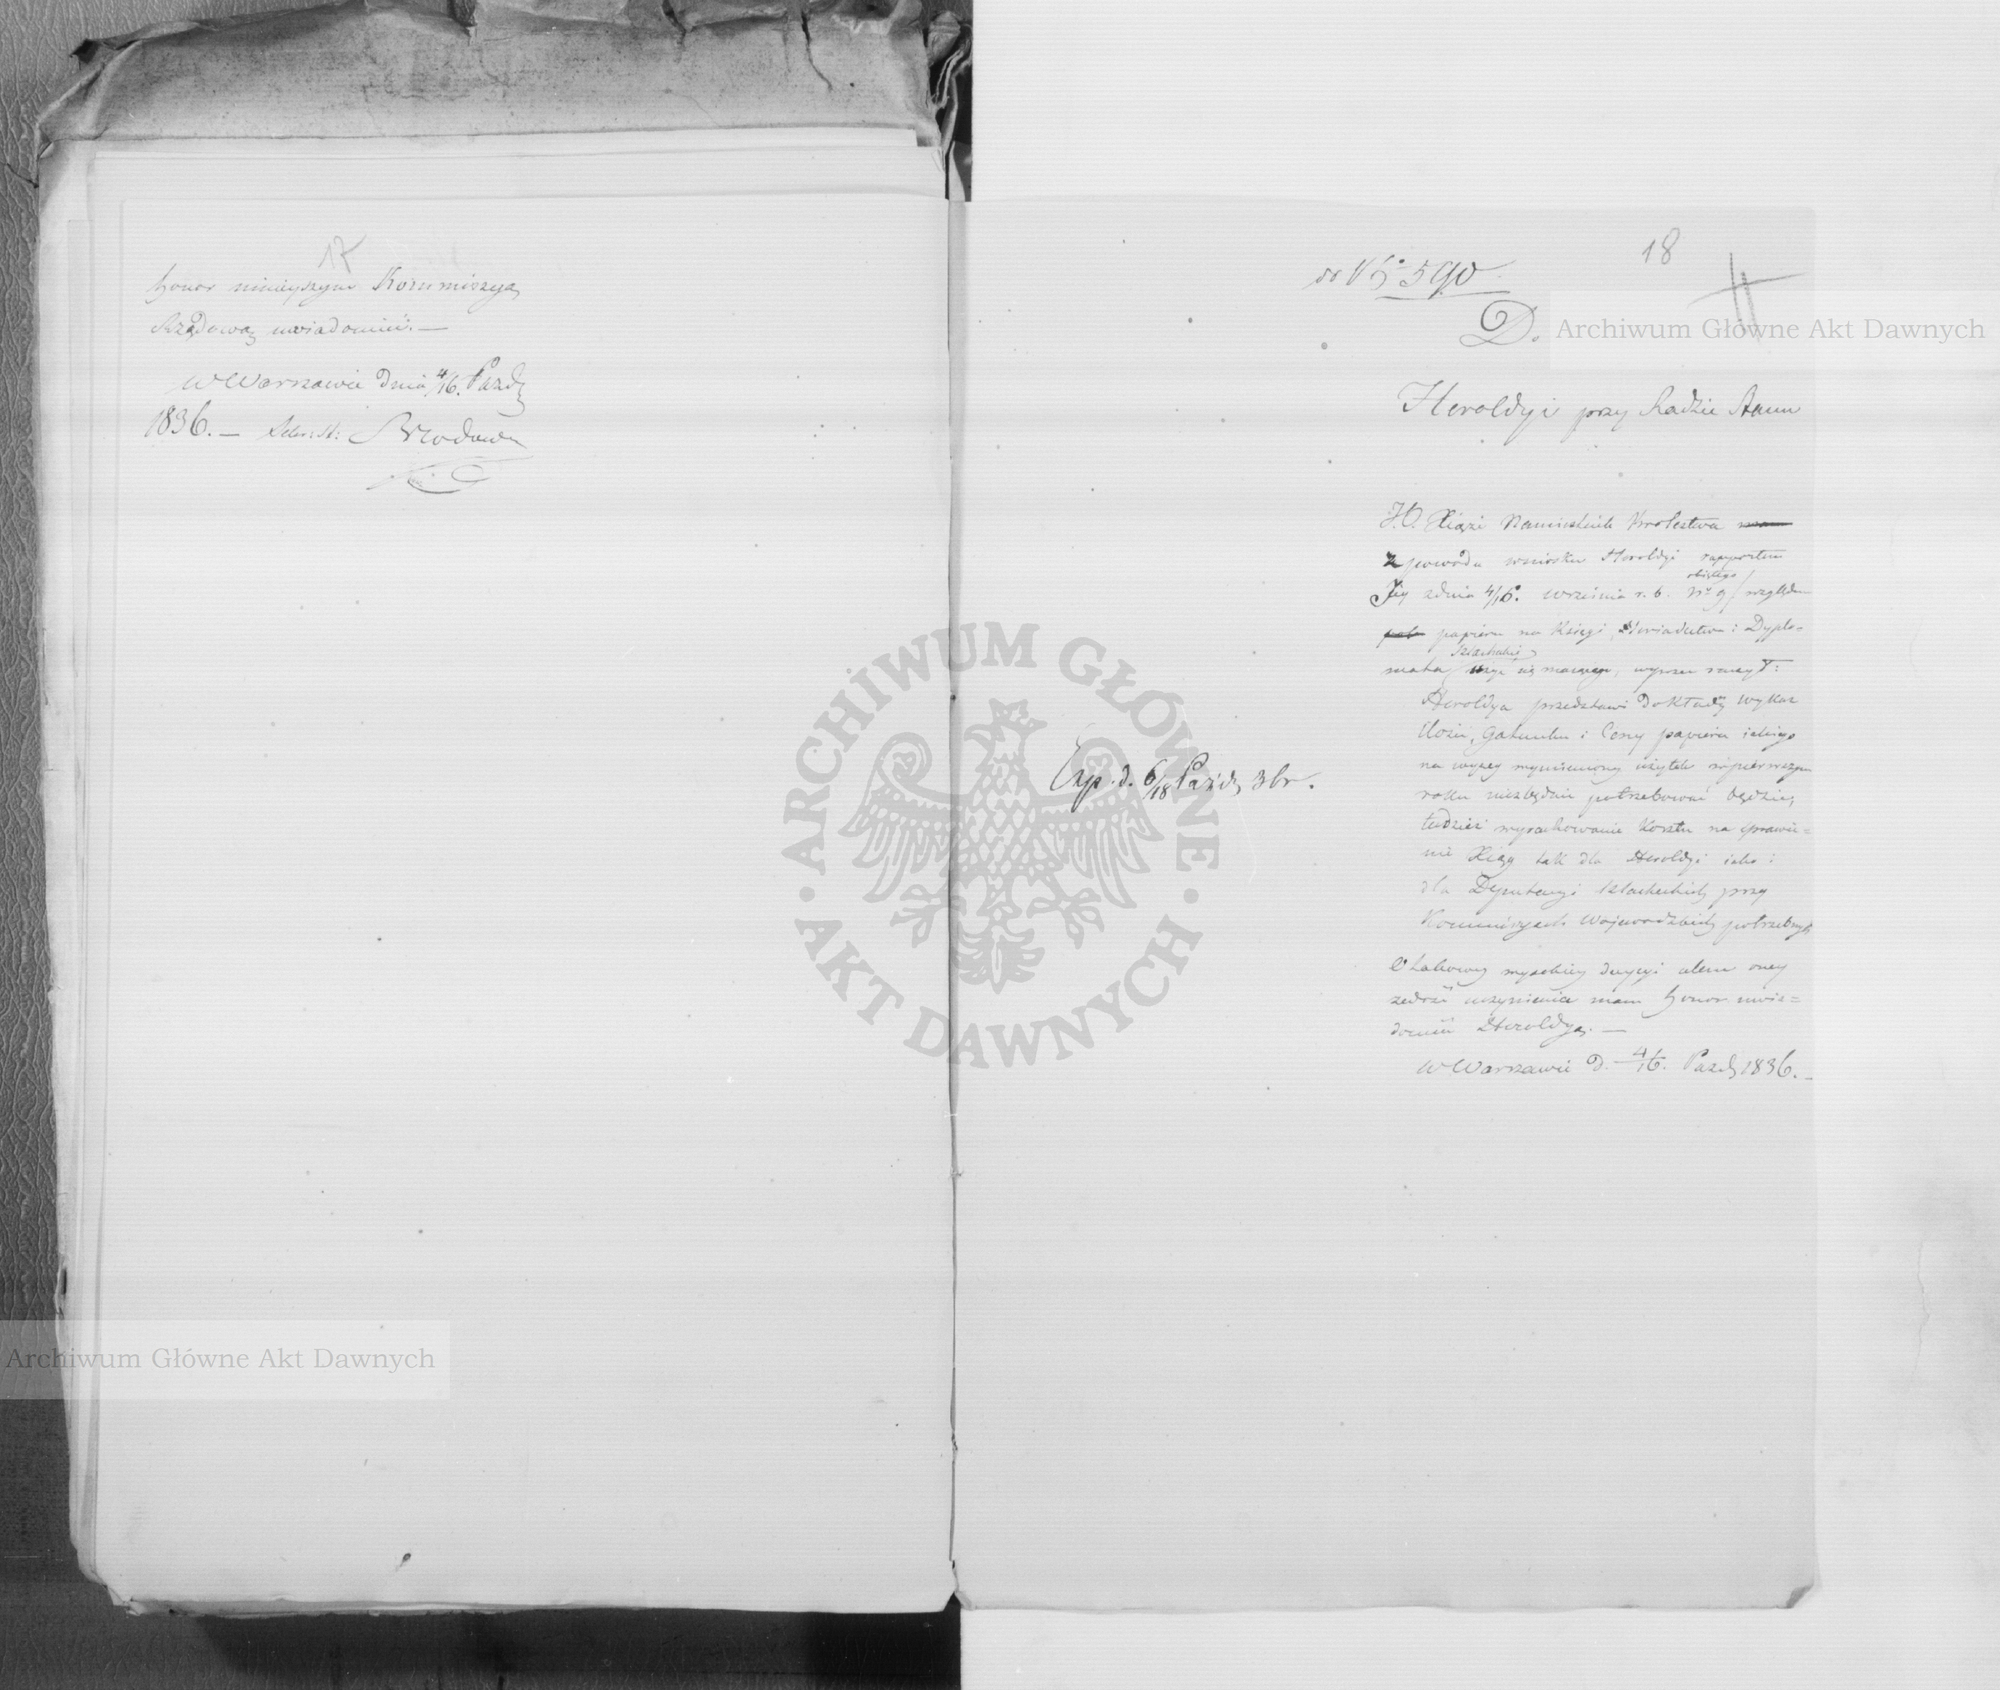 17
honor niniejszym Kommissyą
Rządową uwiadomić. —
w Warszawie dnia 4/16. Paźdz
1836. — Sekr: St: Brzozowski
18
do N° 590
D.
Heroldyi przy Radzie Stanu
J.O. Xiąże Namiestnik Królestwa
z powodu wniosku Heroldyi rapportem
Jej z dnia 4/16. września r. b. N° 9 obiętego względem
papieru na Księgi, Świadectwa i Dyplo=
mata Szlacheckie użyć się mającego, wyrzec raczył:
Heroldya przedstawi dokładny wykaz
Ilości, Gatunku i Ceny papieru jakiego
na wyżej wymieniony użytek w pierwszym
roku niezbędnie potrzebować będzie,
tudzież wyrachowanie kosztu na sprawie=
nie Xiąg tak dla Heroldyi jako i
dla Deputacyi Szlacheckich przy
Kommissyach Wojewódzkich potrzebnych
O takowej wysokiej decyzyi celem onej
zadość uczynienia mam honor uwia=
domić Heroldyą. —
w Warszawie d. 4/16. Paźdz 1836. —
Exp. d. 6/18 Paźdz 36 r.
ARCHIWUM GŁÓWNE
AKT DAWNYCH
Archiwum Główne Akt Dawnych
Archiwum Główne Akt Dawnych